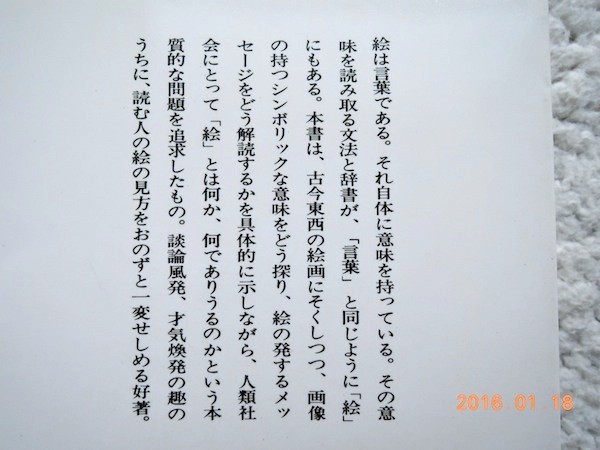 絵は言葉である。それ自体に意味を持っている。その意
味を読み取る文法と辞書が、「言葉」と同じように「絵」
にもある。本書は、古今東西の絵画にそくしつつ、画像
の持つシンボリックな意味をどう探り、絵の発するメッ
セージをどう解読するかを具体的に示しながら、人類社
会にとって「絵」とは何か、何でありうるのかという本
質的な問題を追求したもの。談論風発、才気煥発の趣の
うちに、読む人の絵の見方をおのずと一変せしめる好著。
2016.01.18